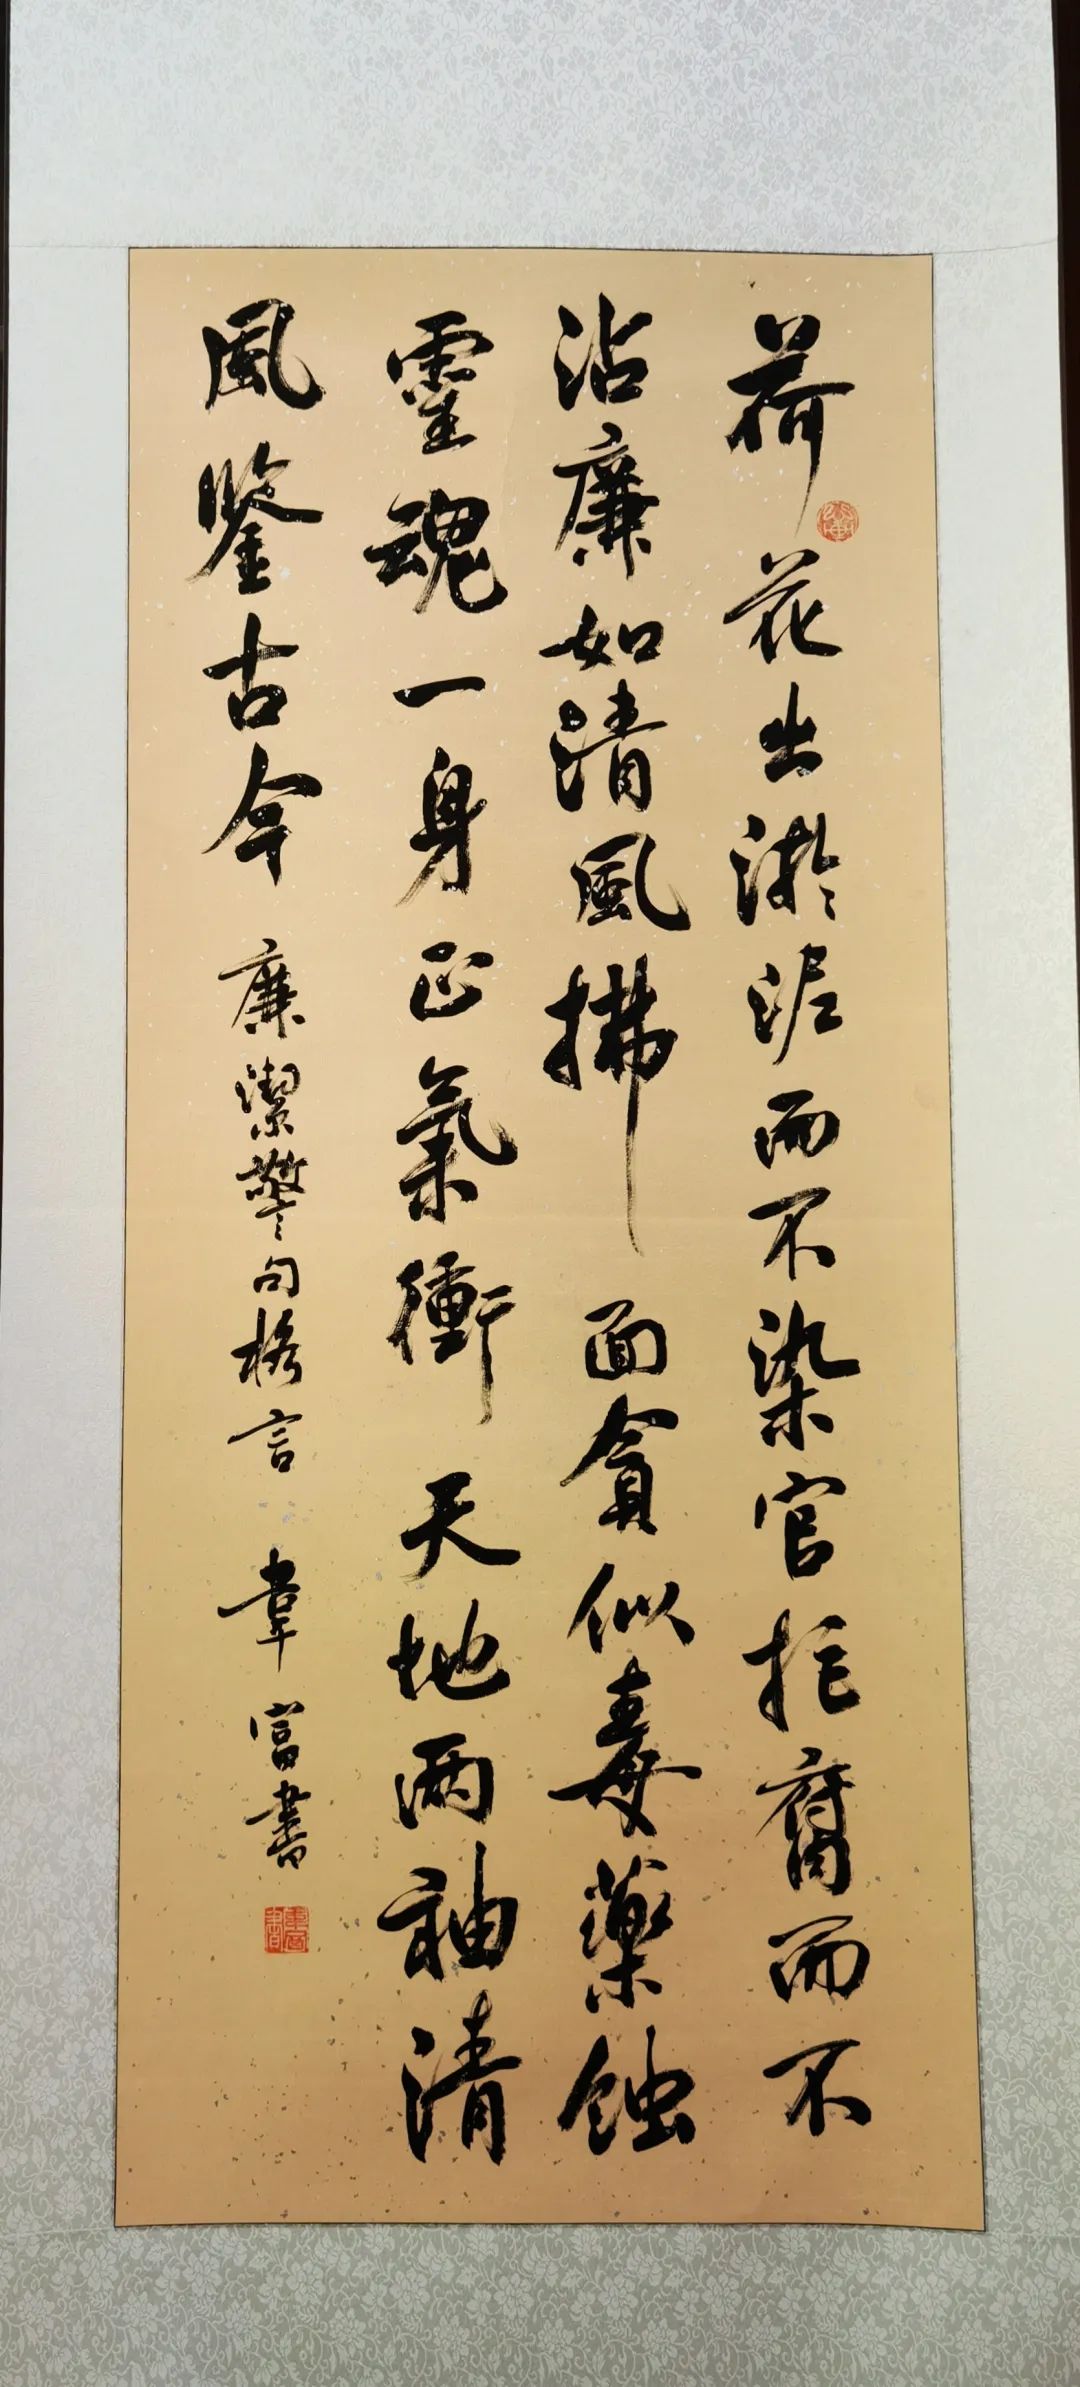 荷花出淤泥而不染官拒腐而不
沾廉如清風拂面貪似毒藥蝕
靈魂一身正氣衝天地兩袖清
風鑒古今 廉潔警句格言 韋富書